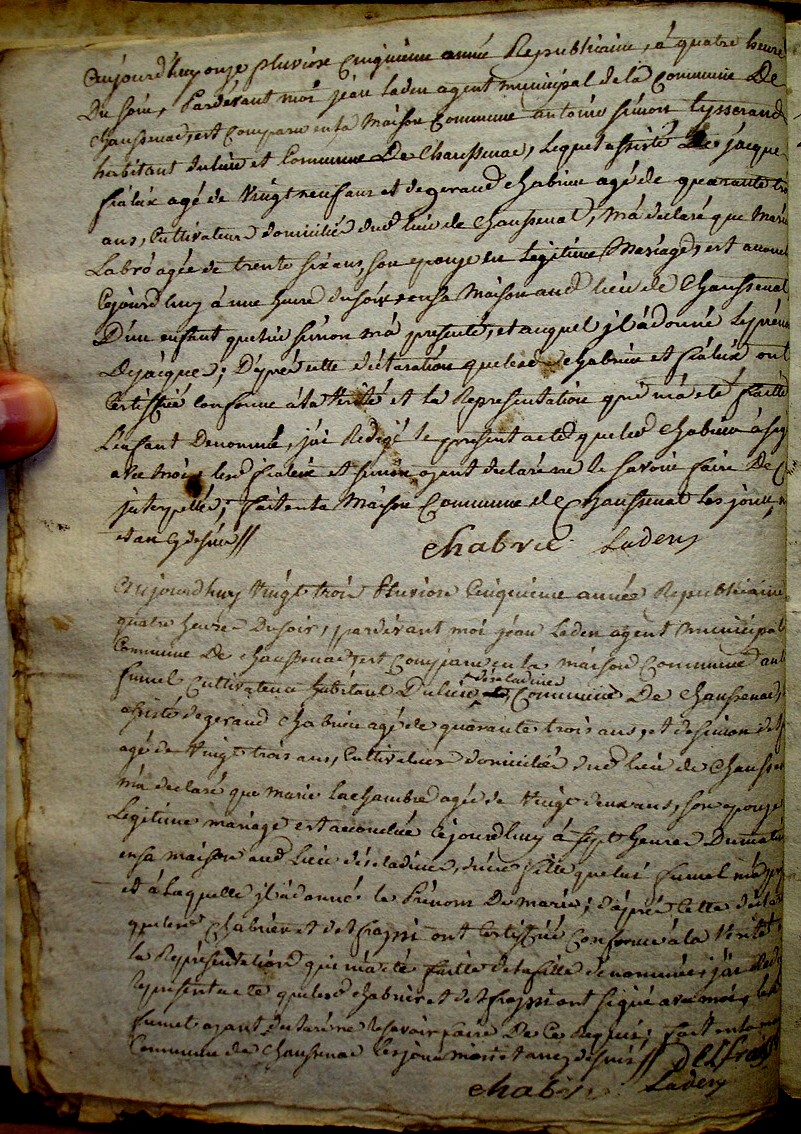 aujourd'huy onze pluviose cinquieme année Republicaine, à quatre heure
Du soir, Pardevant moi jean laden agent municipal de la Commune De
chaussenac, est comparu en la Maison Commune antoine simon tysserand
habitant du lieu et Commune De Chaussenac, lequel assisté De jacque
fialeix agé de Vingt neuf ans et de geraud chabrier agé de quarante tr
ans, Cultivateur domicilié dud lieu de chaussenat, m'a declaré que Marie
Labro agée de trente six ans, son epouze en Legitime Mariage, est accou
Cejourd huy à une heure du soir en sa Maison aud lieu de chaussenat
D'un enfant que luy simon m'a presenté, et auquel jl a donné le prén
De jacque; D'après cette déclaration que lesd chabrier et fialeix ont
Certiffié conforme à la Verité et la Representation qui m'a été faitte
L'enfant Denommé, j'ai Redigé le present acte que led chabrier à sig
avec moi, lesd fialeix et simon ayant declaré ne le savoir faire De
interpellés; fait en la Maison Commune de Chaussenat les jour,
et an cy desus //
chabrie Laden
aujourd huy Vingt trois Pluviose Cinquieme année Republicaine
quatre heure Du soir, pardevant moi jean Laden agent municipal
Commune De chaussenac, est Comparu en la maison Commune ant
fumel Cultivateur habitant Du lieu Commune De chaussenac,
assisté de geraud chabrier agé de quarante trois ans, et de simon del
agé de Vingt trois ans, Cultivateur domiciliés dud lieu de chausse
m'a declaré que marie lachambre agée de Vingt deux ans, son epouze
Legitime mariage est accouchée Cejourd huy à sept heures Du mat
en sa maison aud Lieu d'une fille que lui fumel m'a p
et à Laquelle jl à donné le Prénom De marie; d'après Cette décla
que lesd chabrier et ont Certiffié Conforme à la Verité
la Représentation qui m'a été faitte de la fille denommée, j'ai
le present acte que lesd chabrier et ont signé avec moi, led
fumel ayant declaré ne le savoir faire De Ce Requis; fait en la
Commune de Chaussenac les jour mois et an cy desus //
chabrie Laden